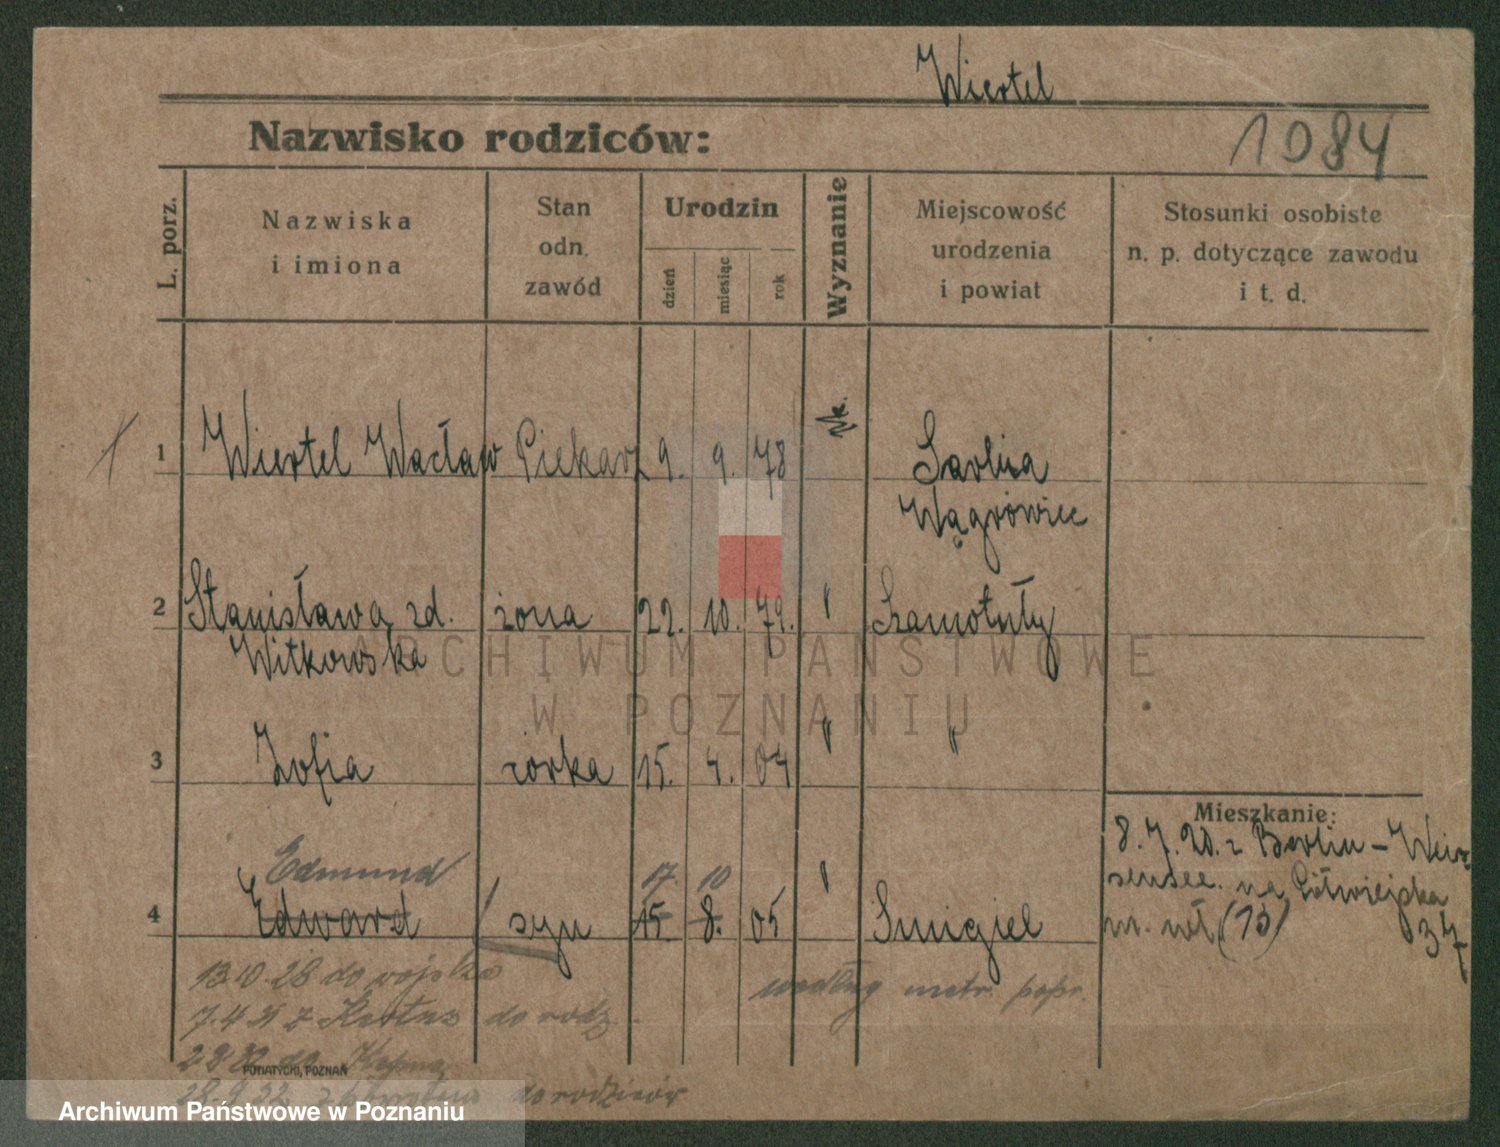 Wiertel
Nazwisko rodziców:
1084
L. porz.
Nazwiska
i imiona
Stan
odn.
zawód
Urodzin
dzień
miesiąc
rok
Wyznanie
Miejscowość
urodzenia
i powiat
Stosunki osobiste
n. p. dotyczące zawodu
i t. d.
1 Wiertel Wacław Piekarz 9. 9. 78
Wągrówiec
2 Stanisława zd. żona 22. 10. 79. " Szamotuły
Witkowska
3 Zofia córka 15. 4. 04 " "
Mieszkanie:
8. 7. 20. z Berlin - Weis
sensee. na Półwiejska
m. wł (13) 37
Edmund 17. 10 "
4 Edward syn 15. 8. 05 Smigiel
13.10.28 do wojska
według metr. popr.
7.4.31 z do rodz.
POTATYCKI, POZNAŃ
28.9.32 do rodziców
ARCHIWUM PAŃSTWOWE
W POZNANIU
Archiwum Państwowe w Poznaniu